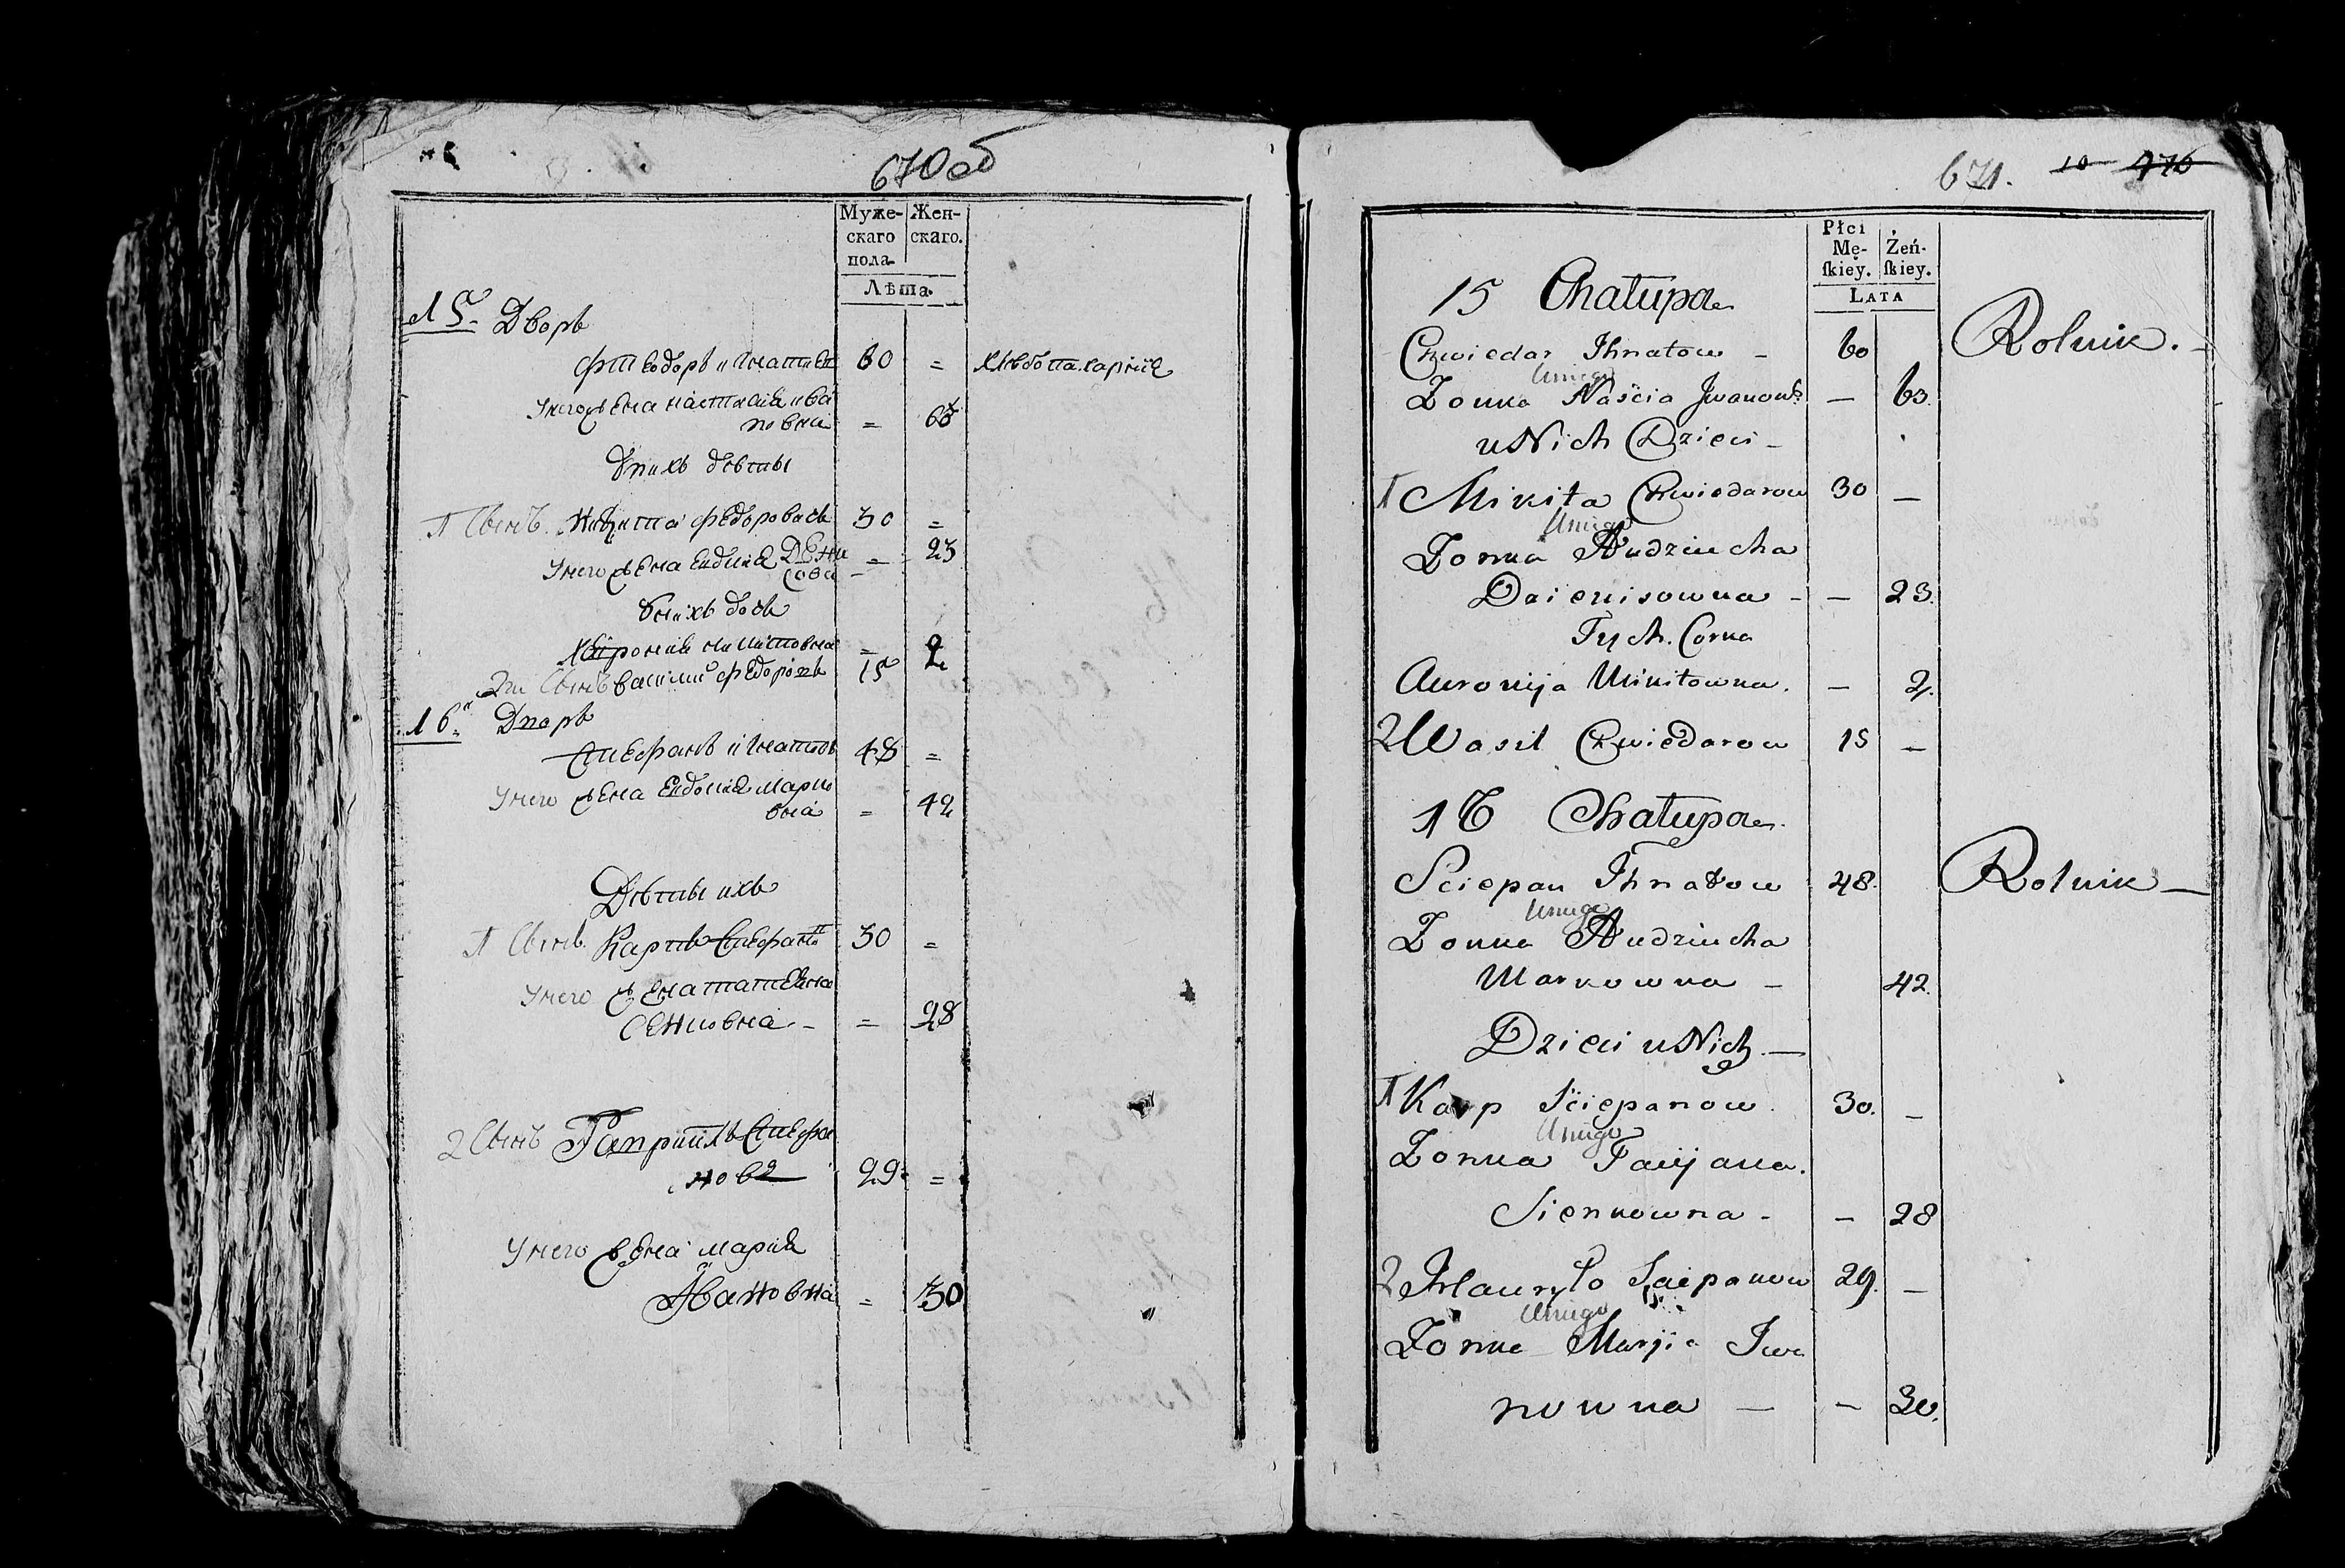 670 об
Муже- Жен-
скаго скаго.
пола.
Лѣта.
15. Дворъ
Фтеодоръ игнатиев 60 = хлѣбопахарния
У него жена настасия ива
новна = 63
У нихъ дѣти
1 Сынъ Никита Федоровъ 30 =
У него жена евдокия Дени
сова = 23
У нихъ дочь
Никитовна = 2
2й Сынъ василий Федоровъ 15
16. Дворъ
Стефанъ игнатов 48 =
У него жена Евдокия марко
вна = 42
Дѣти ихъ
1 Сынъ Карпъ Стефанов 30 =
У него жена татияна
Сенковна - = 28
2 Сынъ Гавриилъ Стефа
новъ 29 =
У него жена мария
Ивановна = 30
671. 10 476
Płci
Mę- Żeń-
ſkiey. ſkiey.
LATA
15 Chałupa
Chwiedar Ihnatow - 60 Rolnik.
U niego
Zonka Naścia Jwanowa — 63.
u Nich Dzieci -
1 Mikita Chwiedarow 30 —
U niego
Zonka Audziucha
Dzienisowna - — 23.
Tych Corka
Auronija Mikitowna. — 2.
2 Wasil Chwiedarow 15 —
16 Chałupa
Sciepan Ihnatow 48. Rolnik —
U niego
Zonka Audziucha
Markowna - 42.
Dzieci u Nich —
1 Karp Sciepanow. 30. —
U niego
Zonka Tacijana.
Sienkowna - — 28
2 Hauryło Sciepanow 29. —
U niego
Zonka Maryja Iwa
nowna — — 30.